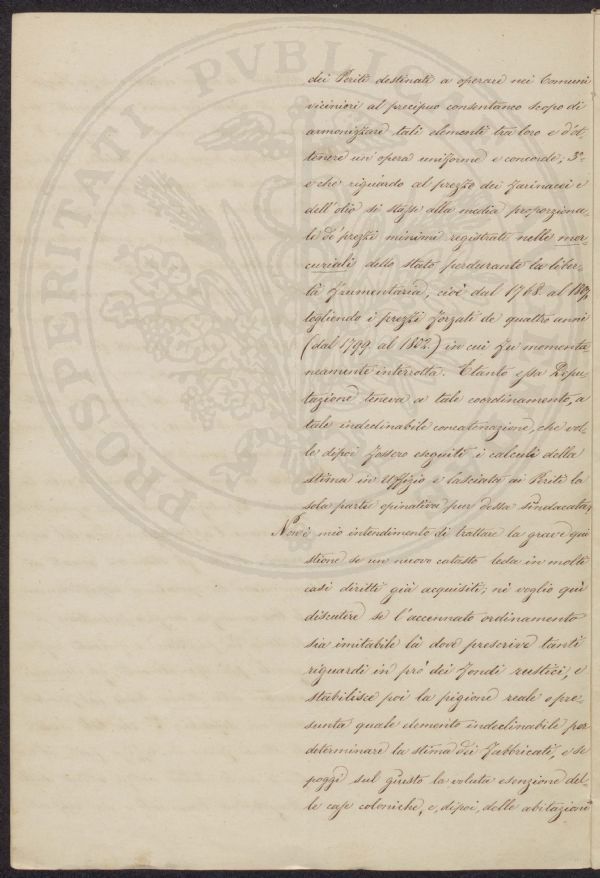 PROSPERITATI PVBLICAE
dei Periti destinati a operare nei Comuni
viciniori al precipuo consentaneo scopo di
armonizzare tali elementi tra loro e d'ot,
tenere un'opera uniforme e concorde; 3º
e che riguardo al prezzo dei farinacei e
dell'olio si stasse alla media proporziona-
le de' prezzi minimi registrati nelle mer-
curiali dello stato perdurante la liber-
tà frumentaria, cioè dal 1768. al 1807,
togliendo i prezzi forzati de quattro anni
(dal 1799 al 1802.) in cui fu momenta
neamente interrotta. E tanto essa Depu-
tazione teneva a tale coordinamento, a
tale indeclinabile concatenazione, che vol-
le dipoi fossero eseguiti i calculi della
stima in Uffizio e lasciata ai Periti la
sola parte opinativa pur dessa sindacata,
Non è mio intendimento di trattare la grave qui
stione se un nuovo catasto leda in molti
casi diritti già acquisiti; nè voglio quì
discutere se l'accennato ordinamento
sia imitabile là dove prescrive tanti
riguardi in prò dei fondi rustici, e
stabilisce poi la pigione reale o pre-
sunta quale elemento indeclinabile per
determinare la stima dei fabbricati, e se
poggi sul giusto la voluta esenzione del-
le case coloniche, e, dipoi, delle abitazioni